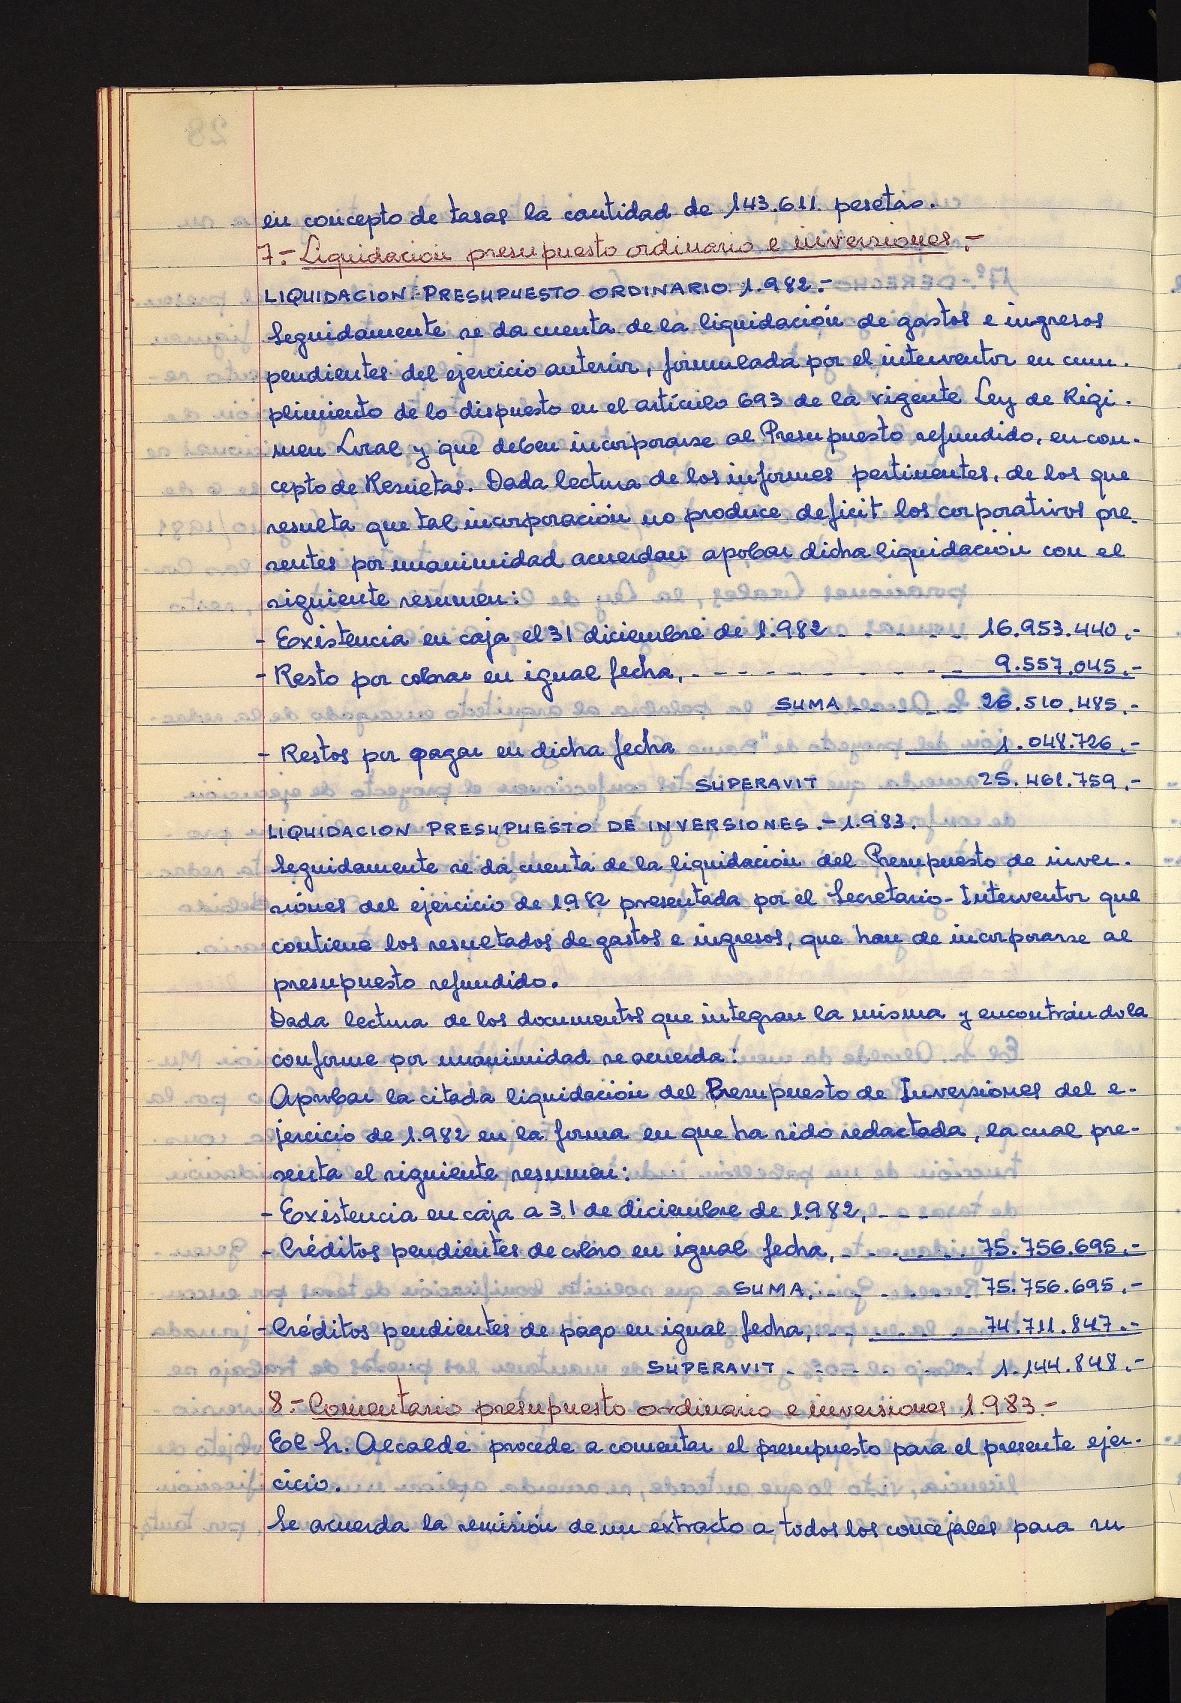 en concepto de tasas la cantidad de 143.611 pesetas.
7.- Liquidación presupuesto ordinario e inversiones.-
LIQUIDACION PRESUPUESTO ORDINARIO 1.982.-
Seguidamente se da cuenta de la liquidación de gastos e ingresos
pendientes del ejercicio anterior, formulada por el interventor en cum-
plimiento de lo dispuesto en el artículo 693 de la vigente Ley de Régi-
men Local y que deben incorporarse al Presupuesto refundido, en con-
cepto de Resultas. Dada lectura de los informes pertinentes, de los que
resulta que tal incorporación no produce deficit los corporativos pre-
sentes por unanimidad acuerdan apobar dicha liquidación con el
siguiente resumen:
- Existencia en caja el 31 diciembre de 1.982 - - - - - - 16.953.440.-
- Resto por cobrar en igual fecha, - - - - - - - - - - - 9.557.045.-
SUMA - - - - - - 26.510.485.-
- Restos por pagar en dicha fecha 1.048.726.-
SUPERAVIT 25.461.759.-
LIQUIDACION PRESUPUESTO DE INVERSIONES.- 1.983.
Seguidamente se da cuenta de la liquidación del Presupuesto de inver-
siones del ejercicio de 1.982 presentada por el Secretario-Interventor que
contiene los resultados de gastos e ingresos, que han de incorporarse al
presupuesto refundido.
Dada lectura de los documentos que integran la misma y encontrándola
conforme por unanimidad se acuerda:
Aprobar la citada liquidación del Presupuesto de Inversiones del e-
jercicio de 1.982 en la forma en que ha sido redactada, la cual pre-
senta el siguiente resumen:
- Existencia en caja a 31 de diciembre de 1.982, - - -
- Créditos pendientes de cobro en igual fecha, - - - - - - 75.756.695.-
SUMA, - - - - - - - 75.756.695.-
- Créditos pendientes de pago en igual fecha, - - - - - - 74.711.847.-
SUPERAVIT - - - - - - - 1.144.848.-
8.- Comentario presupuesto ordinario e inversiones 1.983.-
El Sr. Alcalde procede a comentar el presupuesto para el presente ejer-
cicio.
Se acuerda la remisión de un extracto a todos los concejales para su